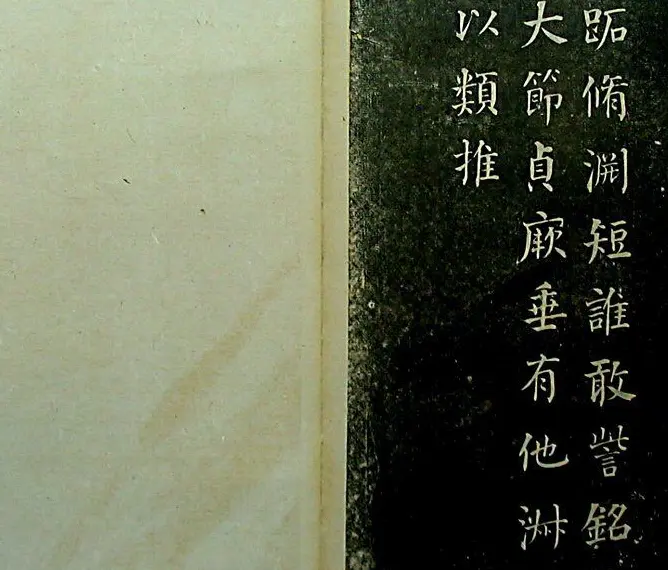 跖脩淵短誰敢訾銘
大節貞厥垂有他
以類推